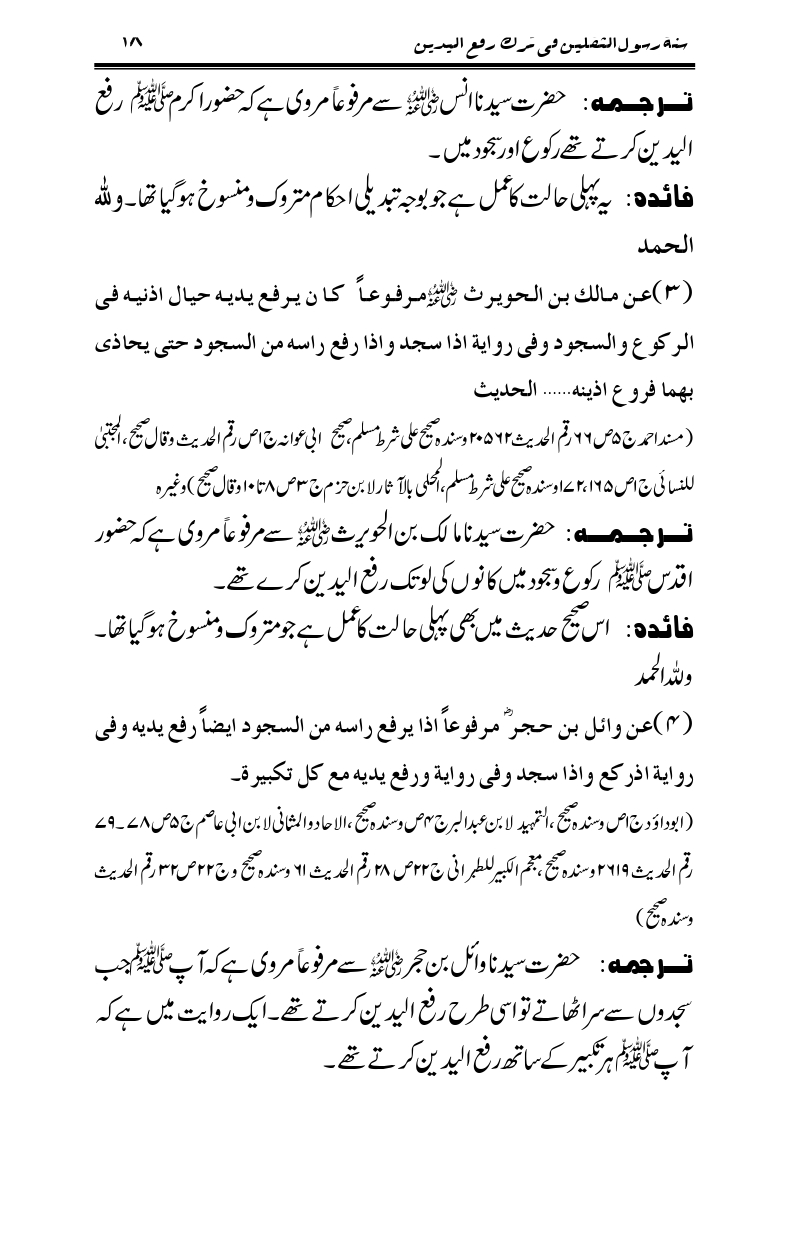 سنة رسول الثقلین فی ترك رفع الیدین ۱۸
ترجمہ: حضرت سیدنا انس رضی اللہ عنہ سے مرفوعاً مروی ہے کہ حضور اکرم ﷺ رفع
الیدین کرتے تھے رکوع اور سجود میں ۔
فائدہ: یہ پہلی حالت کا عمل ہے جو بوجہ تبدیلی احکام متروک و منسوخ ہو گیا تھا۔ وللہ
الحمد
(۳) عن مالك بن الحویرث رضی اللہ عنہ مرفوعاً کان یرفع یدیہ حیال اذنیہ فی
الرکوع والسجود وفی روایة اذا سجد واذا رفع راسہ من السجود حتی یحاذی
بھما فروع اذینہ...... الحدیث
(مسند احمد ج۵ ص۶۶ رقم الحدیث ۲۰۵۶۲ وسندہ صحیح علی شرط مسلم، صحیح ابی عوانہ ج ا ص رقم الحدیث وقال صحیح، المجتبیٰ
للنسائی ج ا ص ۱۶۵،۱۷۲ وسندہ صحیح علی شرط مسلم، المحلی بالآ ثار لابن حزم ج۳ ص ۸ تا ۱۰ وقال صحیح) وغیرہ
ترجمہ: حضرت سیدنا مالک بن الحویرث رضی اللہ عنہ سے مرفوعاً مروی ہے کہ حضور
اقدس ﷺ رکوع و سجود میں کانوں کی لو تک رفع الیدین کرے تھے۔
فائدہ: اس صحیح حدیث میں بھی پہلی حالت کا عمل ہے جو متروک و منسوخ ہو گیا تھا۔
وللہ الحمد
(۴) عن وائل بن حجرؓ مرفوعاً اذا یرفع راسہ من السجود ایضاً رفع یدیہ وفی
روایة اذرکع واذا سجد وفی روایة ورفع یدیہ مع کل تکبیرة۔
(ابوداؤد ج ا ص وسندہ صحیح، التمہید لابن عبدالبر ج۴ ص وسندہ صحیح، الاحاد والمثانی لابن ابی عاصم ج۵ ص ۷۸۔۷۹
رقم الحدیث ۲۶۱۹ وسندہ صحیح، معجم الکبیر للطبرانی ج۲۲ ص ۲۸ رقم الحدیث ۶۱ وسندہ صحیح و ج۲۲ ص۳۲ رقم الحدیث
وسندہ صحیح)
ترجمہ: حضرت سیدنا وائل بن حجر رضی اللہ عنہ سے مرفوعاً مروی ہے کہ آپ ﷺ جب
سجدوں سے سر اٹھاتے تو اسی طرح رفع الیدین کرتے تھے۔ ایک روایت میں ہے کہ
آپ ﷺ ہر تکبیر کے ساتھ رفع الیدین کرتے تھے ۔